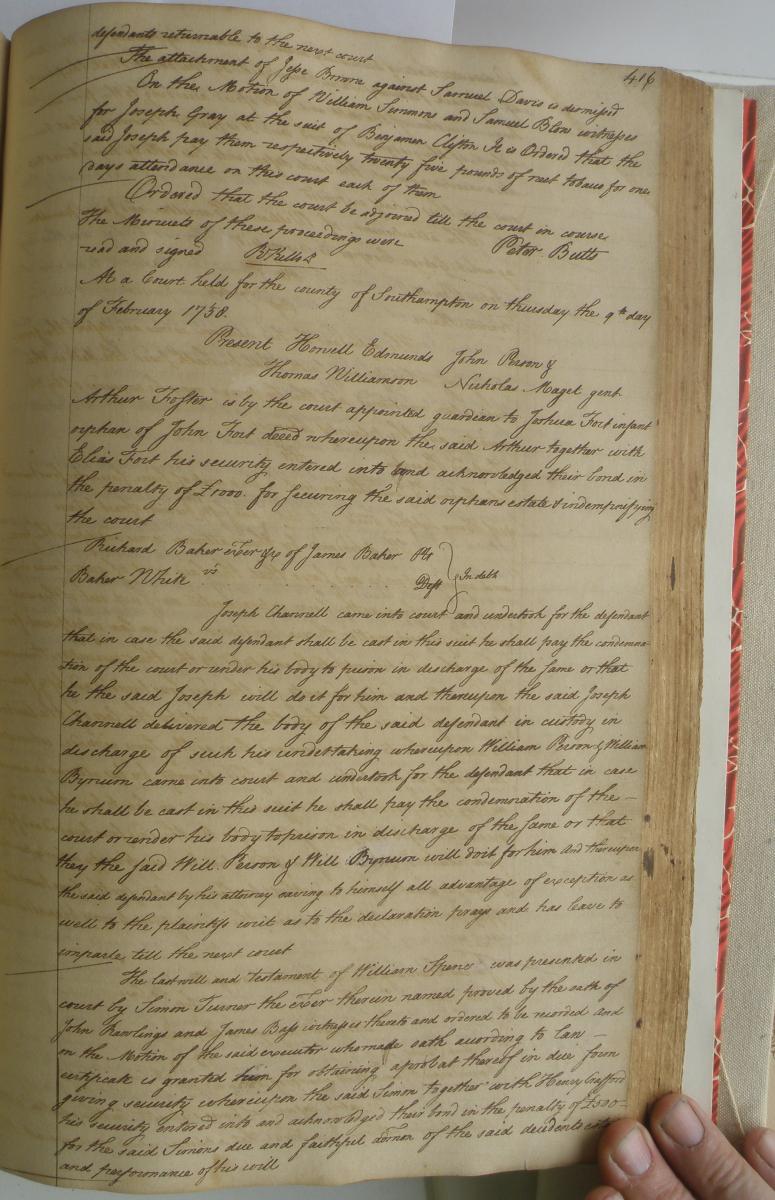 416
defendants returnable to the next court
The attachment of Jesse Browne against Samuel Davis is dismissed
On the Motion of William Simmons and Samuel Blow witnesses
for Joseph Gray at the suit of Benjamin Clifton It is Ordered that the
said Joseph pay them respectively twenty five pounds of neet tobacco for one
days attendance on this court each of them
Ordered that the court be adjorned till the court in course
The Menuets of these proceedings were
Peter Butts
read and signed
At a Court held for the county of Southampton on thursday the 9th day
of February 1758.
Present Howell Edmunds John Person &
Thomas Williamson Nicholas Maget gent.
Arthur Foster is by the court appointed guardian to Joshua Fort infant
orphan of John Fort deced whereupon the said Arthur together with
Elias Fort his security entered into and acknowledged their bond in
the penalty of £1000. for securing the said orphans estate & indemnifying
the court
Richard Baker exer &c of James Baker Plt
vs In debt
Baker White Deft
Joseph Channell came into court and undertook for the defendant
that in case the said defendant shall be cast in this suit he shall pay the condemna-
tion of the court or under his body to prison in discharge of the same or that
he the said Joseph will do it for him and thereupon the said Joseph
Channell delivered the body of the said defendant in custody in
discharge of such his undertaking whereupon William Person & William
Bynum came into court and undertook for the defendant that in case
he shall be cast in this suit he shall pay the condemnation of the -
court or render his body to prison in discharge of the same or that
they the said Will. Person & Will Bynum will do it for him And thereupon
the said defendant by his attorney saving to himself all advantage of exception as
well to the plaintifs writ as to the declaration prays and has leave to
imparle till the next court
The last will and testament of William Spence was presented in
court by Simon Turner the exer therein named proved by the oath of
John Rawlings and James Bass witnesses thereto and ordered to be recorded and
on the Motion of the said executor who made oath acording to law -
certificate is granted him for obtaining a probat thereof in due form
giving security whereupon the said Simon together with Henry Crafford
his security entered into and acknowledged their bond in the penalty of £500-
for the said Simons due and faithful admon of the said decedents
and performance of his will